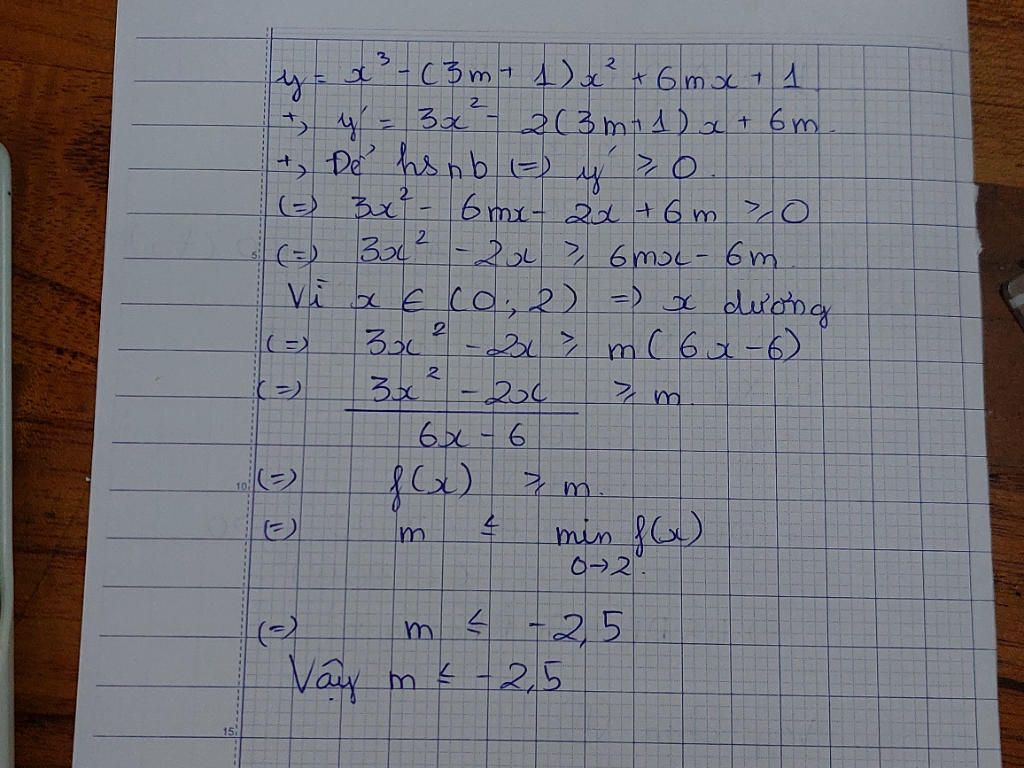 y = x³ - (3m + 1)x² + 6mx + 1
+, y' = 3x² - 2(3m+1)x + 6m.
+, Để hs nb (=) y' ⩾ 0.
(=) 3x² - 6mx - 2x + 6m ⩾ 0
5 (=) 3x² - 2x ⩾ 6mx - 6m
Vì x ∈ (0; 2) => x dương
(=) 3x² - 2x ⩾ m(6x-6)
(=) 3x² - 2x ⩾ m.
6x - 6
10 (=) f(x) ⩾ m.
(=) m ≤ min f(x)
0→2.
(=) m ≤ -2,5
Vậy m ≤ -2,5
15